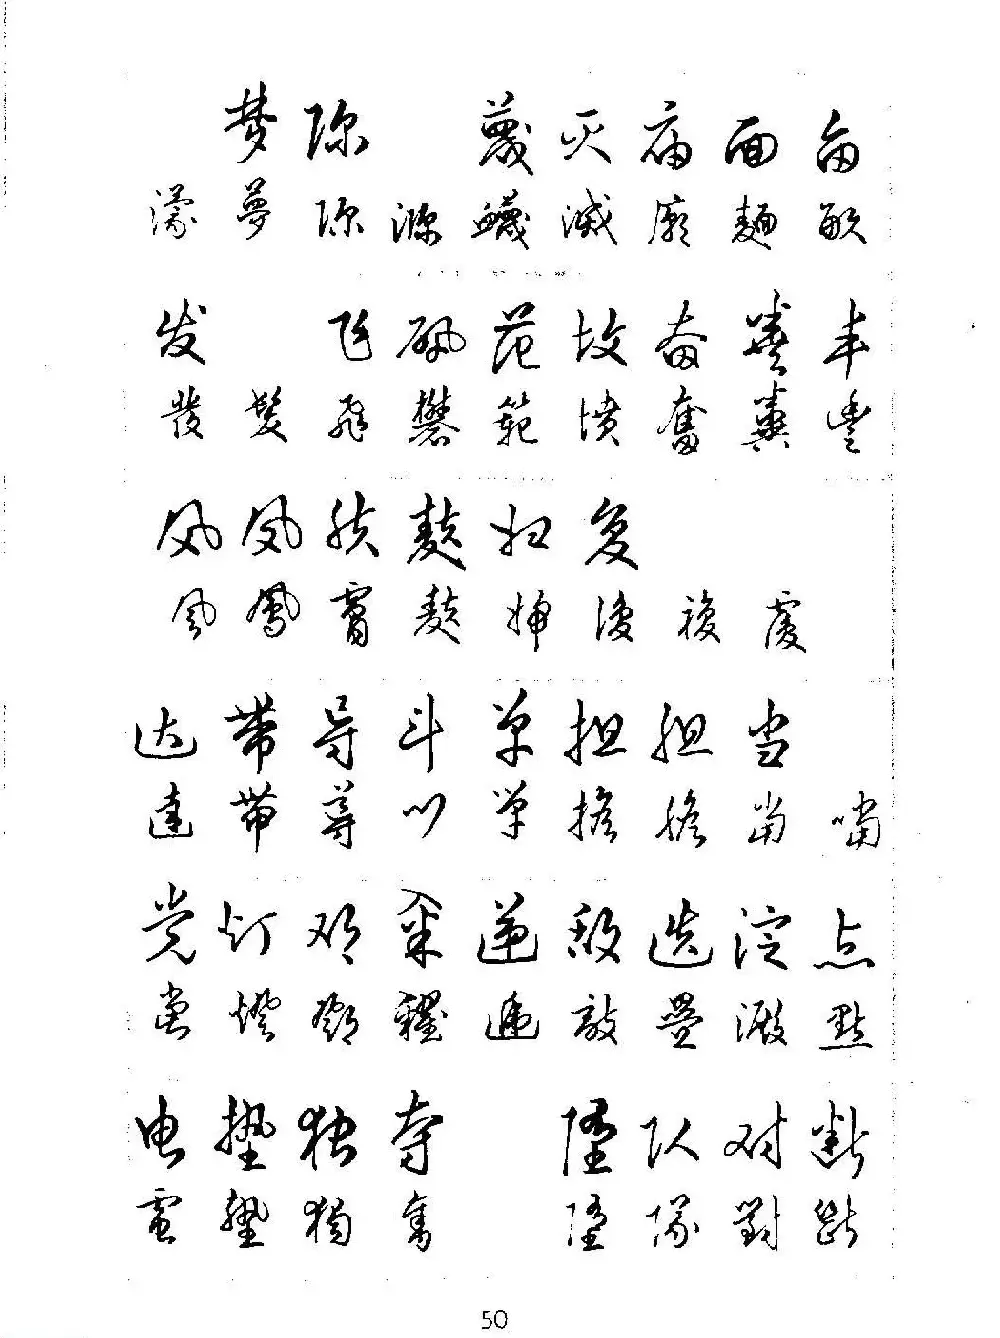 梦 弥 蔑 灭 庙 面 亩
濛 夢 弥 瀰 衊 滅 廟 麵 畝
发 飞 矾 范 坟 奋 粪 丰
發 髮 飛 礬 範 墳 奮 糞 豐
风 凤 肤 麸 妇 复
風 鳳 膚 麩 婦 復 複 覆
达 带 导 斗 单 担 胆 当
達 帶 導 鬥 單 擔 膽 當 噹
党 灯 邓 籴 递 敌 迭 淀 点
黨 燈 鄧 糴 遞 敵 疊 澱 點
电 垫 独 夺 堕 队 对 断
電 墊 獨 奪 墮 隊 對 斷
50